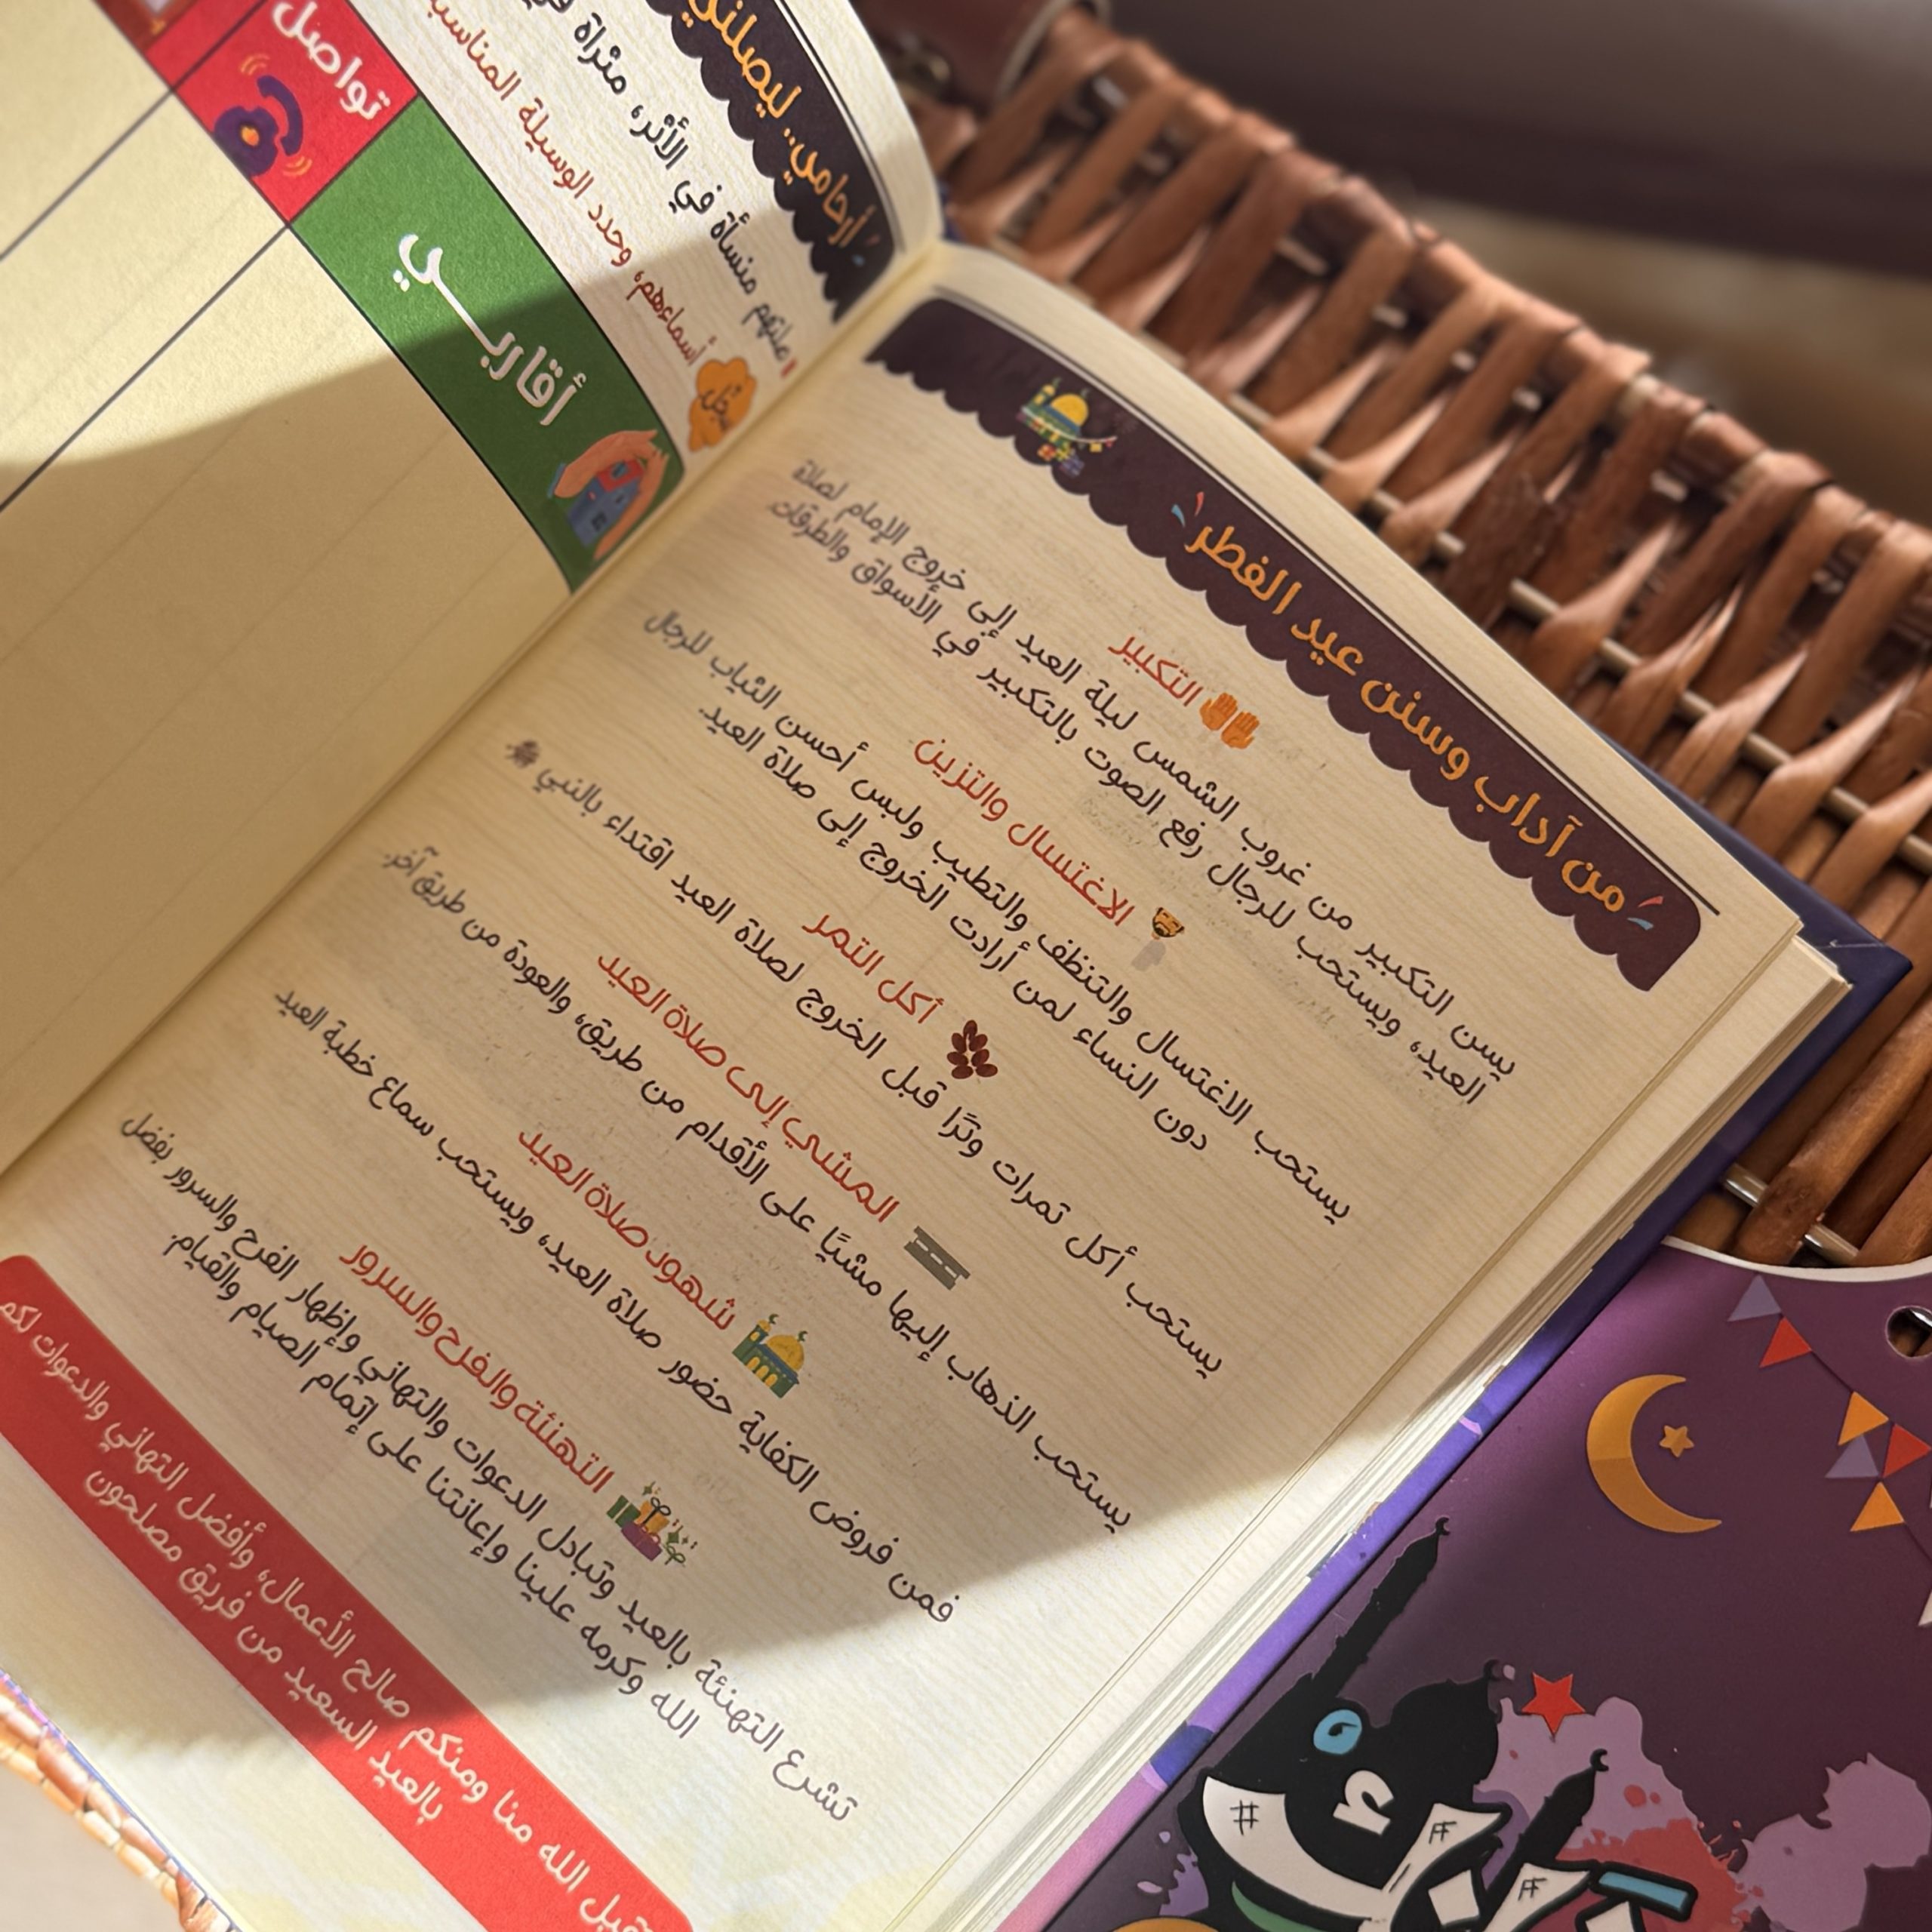 من آداب وسنن عيد الفطر
التكبير
يسن التكبير من غروب الشمس ليلة العيد إلى خروج الإمام لصلاة
العيد، ويستحب للرجال رفع الصوت بالتكبير في الأسواق والطرقات.
الاغتسال والتزين
يستحب الاغتسال والتنظف والتطيب ولبس أحسن الثياب للرجال
دون النساء لمن أرادت الخروج إلى صلاة العيد.
أكل التمر
يستحب أكل تمرات وترًا قبل الخروج لصلاة العيد اقتداء بالنبي ﷺ
المشي إلى صلاة العيد
يستحب الذهاب إليها مشيًا على الأقدام من طريق، والعودة من طريق آخر.
شهود صلاة العيد
فمن فروض الكفاية حضور صلاة العيد، ويستحب سماع خطبة العيد
التهنئة والفرح والسرور
تشرع التهنئة بالعيد وتبادل الدعوات والتهاني وإظهار الفرح والسرور بفضل
الله وكرمه علينا وإعانتنا على إتمام الصيام والقيام.
تقبل الله منا ومنكم صالح الأعمال، وأفضل التهاني والدعوات لكم
بالعيد السعيد من فريق مصلحون
أرحامي.. ليصلني
صلتهم منسأة في الأثر، مثراة
سجّل أسماءهم، وحدد الوسيلة المناسب
أقاربي
تواصل